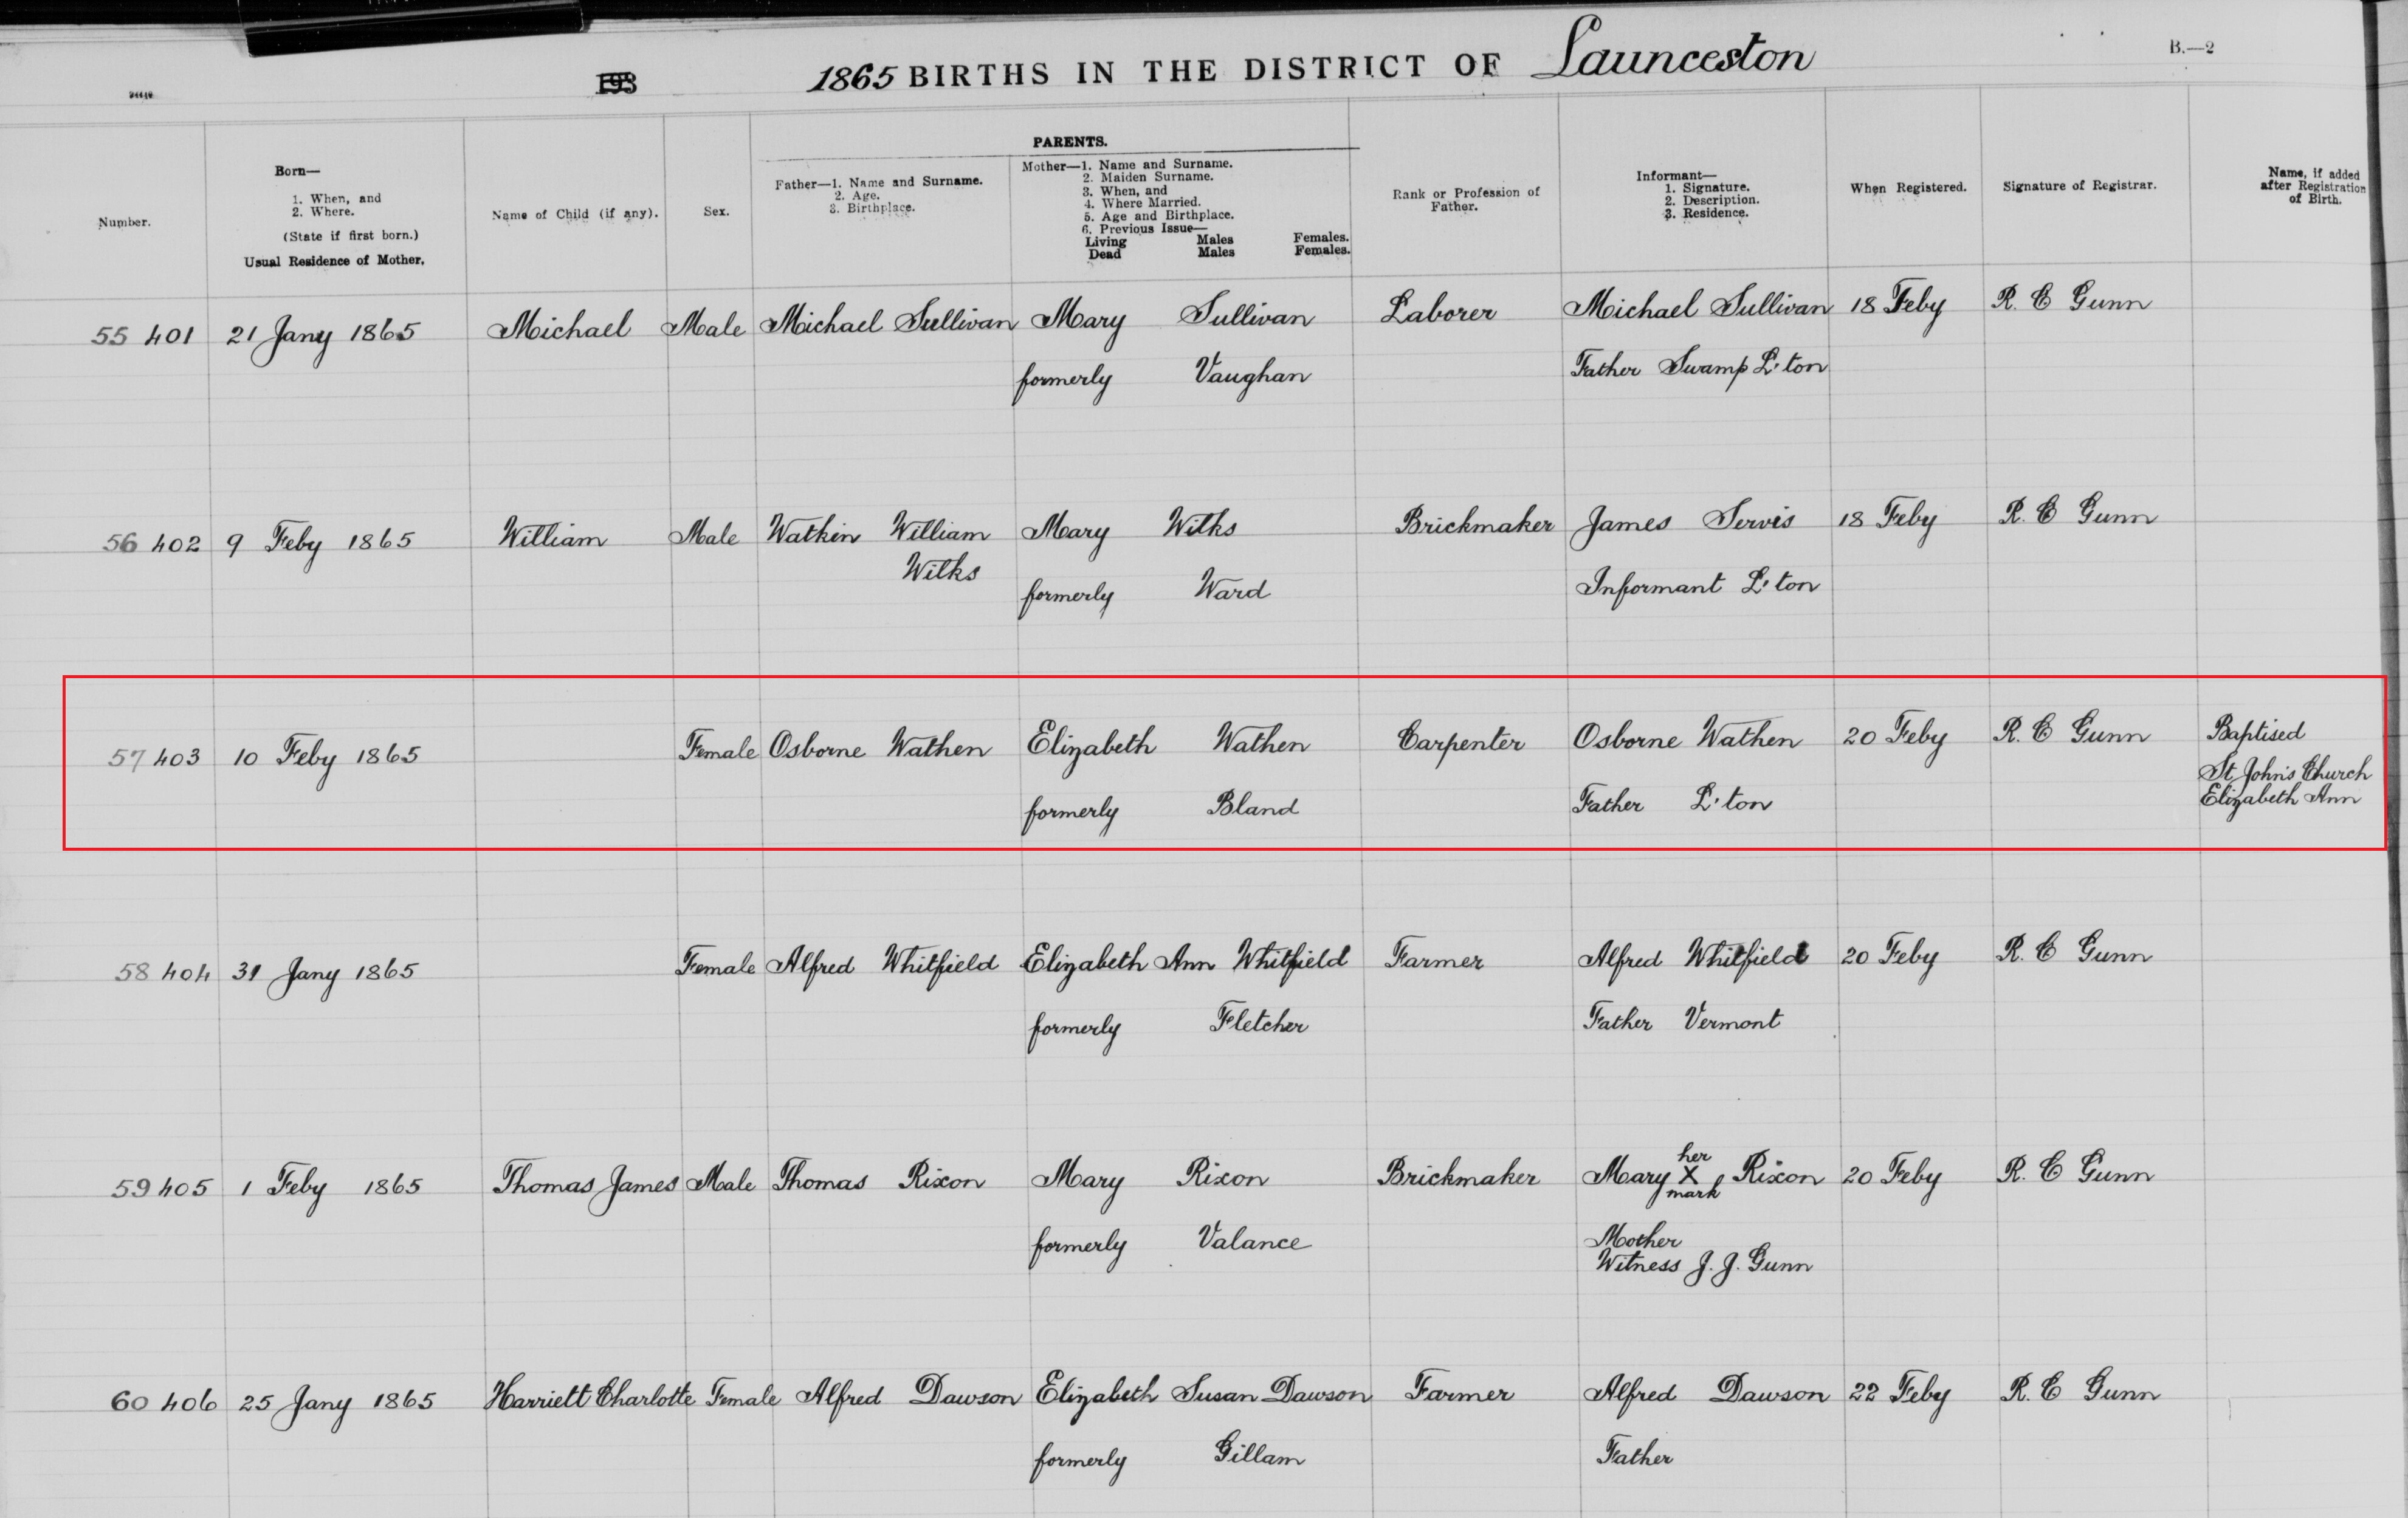 1865 BIRTHS IN THE DISTRICT OF Launceston
B.—2
193
PARENTS.
Number.
Born—
1. When, and
2. Where.
(State if first born.)
Usual Residence of Mother.
Name of Child (if any).
Sex.
Father—1. Name and Surname.
2. Age.
3. Birthplace.
Mother—1. Name and Surname.
2. Maiden Surname.
3. When, and
4. Where Married.
5. Age and Birthplace.
6. Previous Issue—
Living Males Females.
Dead Males Females.
Rank or Profession of
Father.
Informant—
1. Signature.
2. Description.
3. Residence.
When Registered.
Signature of Registrar.
Name, if added
after Registration
of Birth.
55 401 21 Jany 1865 Michael Male Michael Sullivan Mary Sullivan Laborer Michael Sullivan 18 Feby R. C Gunn
formerly Vaughan Father Swamp L'ton
56 402 9 Feby 1865 William Male Watkin William Mary Wilks Brickmaker James Servis 18 Feby R. C Gunn
Wilks formerly Ward Informant L'ton
57 403 10 Feby 1865 Female Osborne Wathen Elizabeth Wathen Carpenter Osborne Wathen 20 Feby R. C Gunn Baptised
St John's Church
formerly Bland Father L'ton Elizabeth Ann
58 404 31 Jany 1865 Female Alfred Whitfield Elizabeth Ann Whitfield Farmer Alfred Whitfield 20 Feby R. C Gunn
formerly Fletcher Father Vermont
59 405 1 Feby 1865 Thomas James Male Thomas Rixon Mary Rixon Brickmaker Mary her X mark Rixon 20 Feby R. C Gunn
formerly Valance Mother
Witness J. J. Gunn
60 406 25 Jany 1865 Harriett Charlotte Female Alfred Dawson Elizabeth Susan Dawson Farmer Alfred Dawson 22 Feby R. C Gunn
formerly Gillam Father